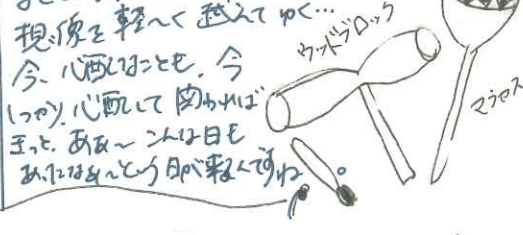 想像を軽〜く越えてゆく…
今、心配なことも、今
しっかり心配して関われば
きっと、ああ〜こんな日も
あったなぁ〜という日が来るんですね
ウッドブロック
マラカス